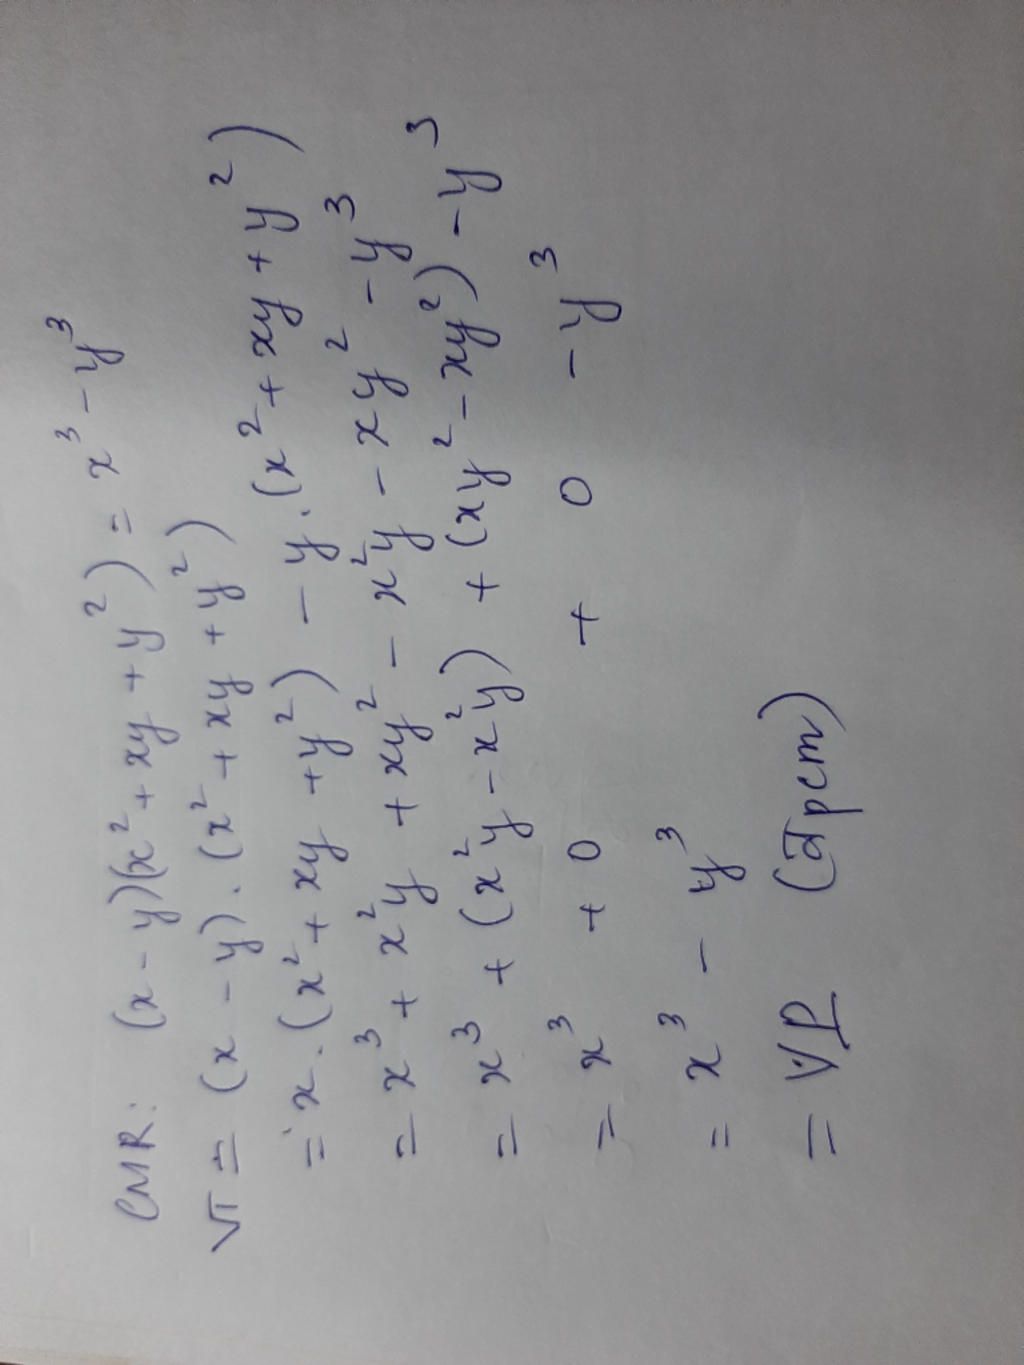 CMR: (x - y)(x² + xy + y²) = x³ - y³
VT = (x - y).(x² + xy + y²)
= x.(x² + xy + y²) - y.(x² + xy + y²)
= x³ + x²y + xy² - x²y - xy² - y³
= x³ + (x²y - x²y) + (xy² - xy²) - y³
= x³ + 0 + 0 - y³
= x³ - y³
= VP (đpcm)